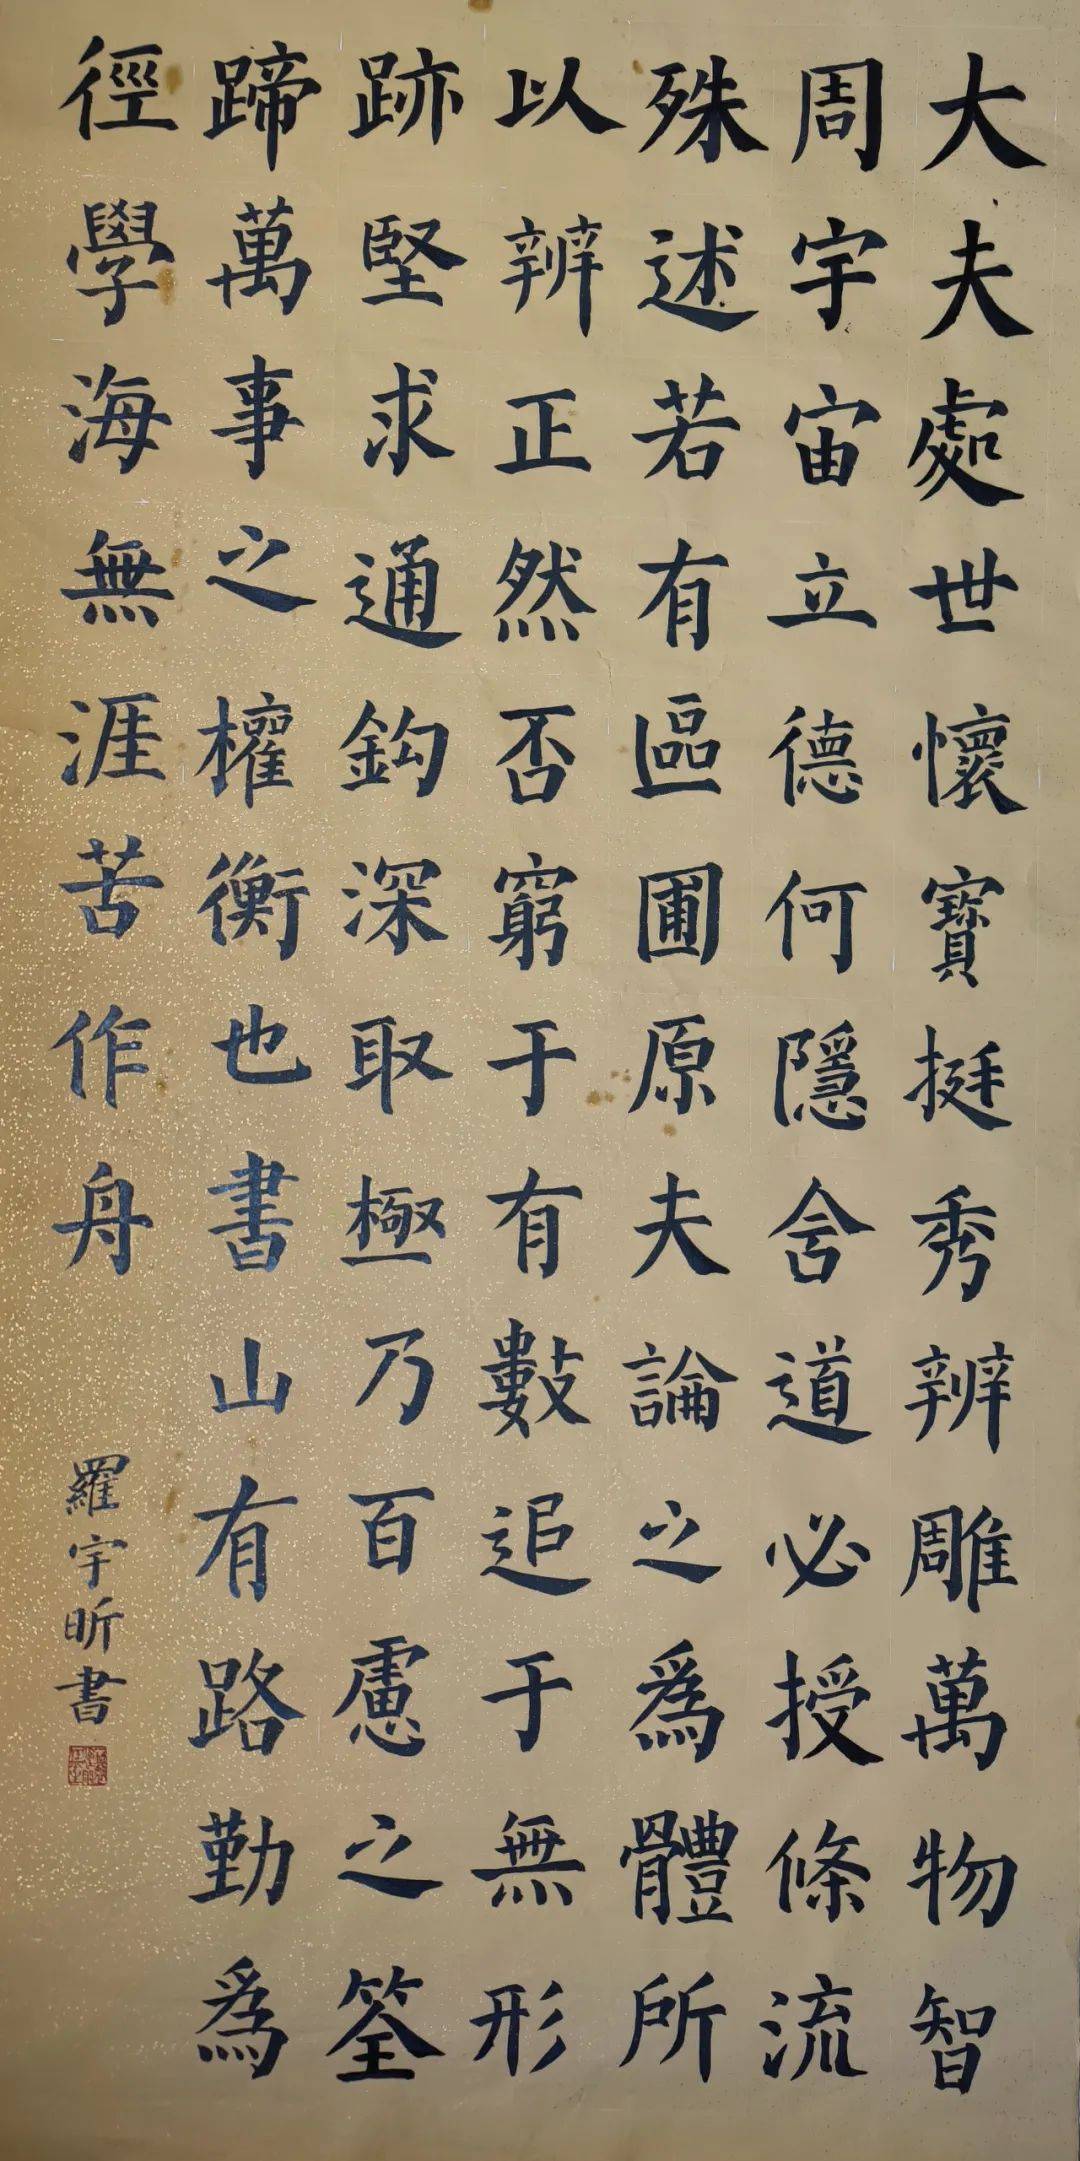 大夫處世懷寶挺秀辨雕萬物智
周宇宙立德何隱含道必授條流
殊述若有區囿原夫論之為體所
以辨正然否窮于有數追于無形
跡堅求通鈎深取極乃百慮之筌
蹄萬事之權衡也書山有路勤為
徑學海無涯苦作舟
羅宇昕書